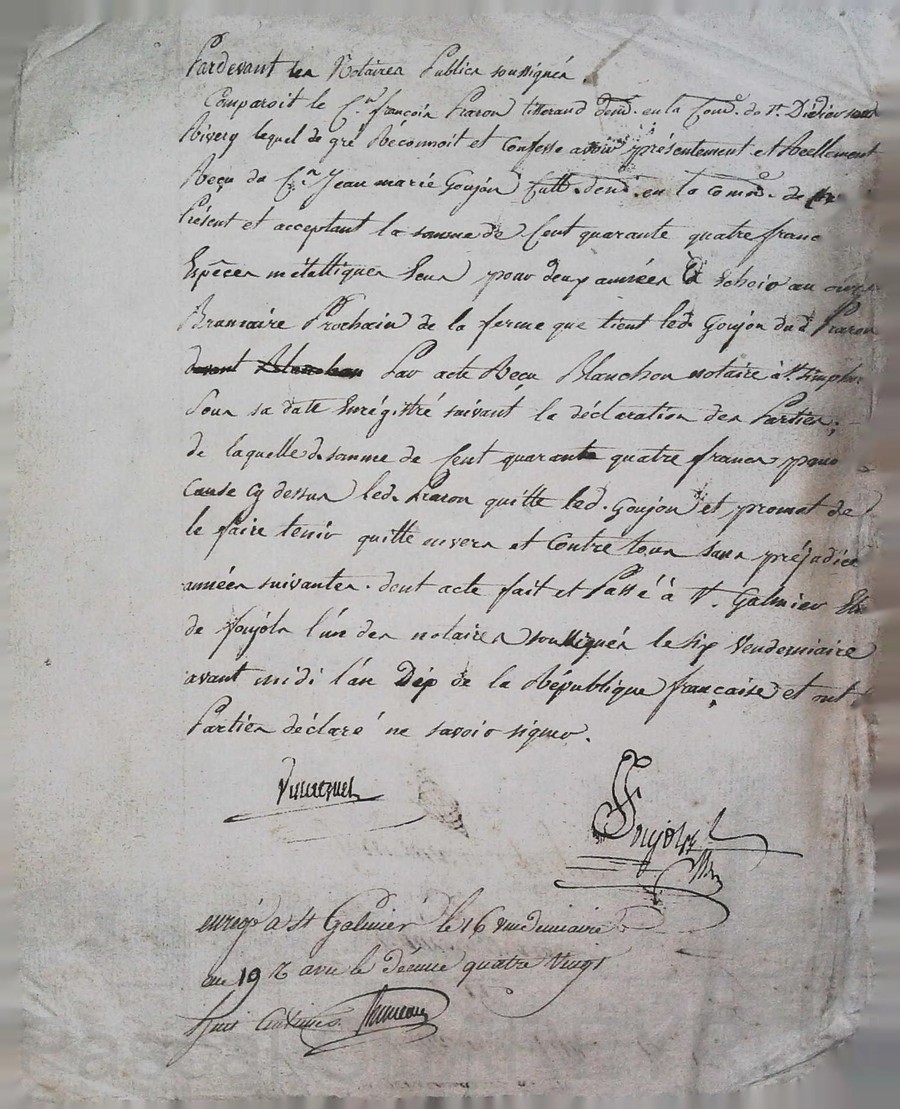 Pardevant les Notaires Publics soussignés.
Comparoit le C.en françois Pracon tisserand dem.t en la Com.e de St. Didier sous
Rivery lequel de gré Réconnoit et Confesse avoir présentement et Réellement
Reçu du C.en Jean marié Goujon Cult. dem.t en la Comm.e de
Présent et acceptant la somme de Cent quarante quatre francs
Espèces métalliques Pour deux années à Echoir au onze
Brumaire Prochain de la ferme que tient led. Goujon dud. Pracon
Par acte Reçu Blanchon notaire à St. Simphor
Sous sa date Enrégistré suivant la déclaration des Parties;
de laquelle d. somme de Cent quarante quatre francs pour
Cause cy dessus led. Pracon quitte led. Goujon et promet de
le faire tenir quitte envers et Contre tous sans préjudice
années suivantes. dont acte fait et Passé à St. Galmier
de foujols l'un des notaires soussignés le six Vendemiaire
avant midi l'an Dix de la République française et ont
Parties déclaré ne savoir signer.
foujols
enregé a St Galmier le 16 vendemiaire
an 10 R avec le Décime quatre Vingt
huit Centimes